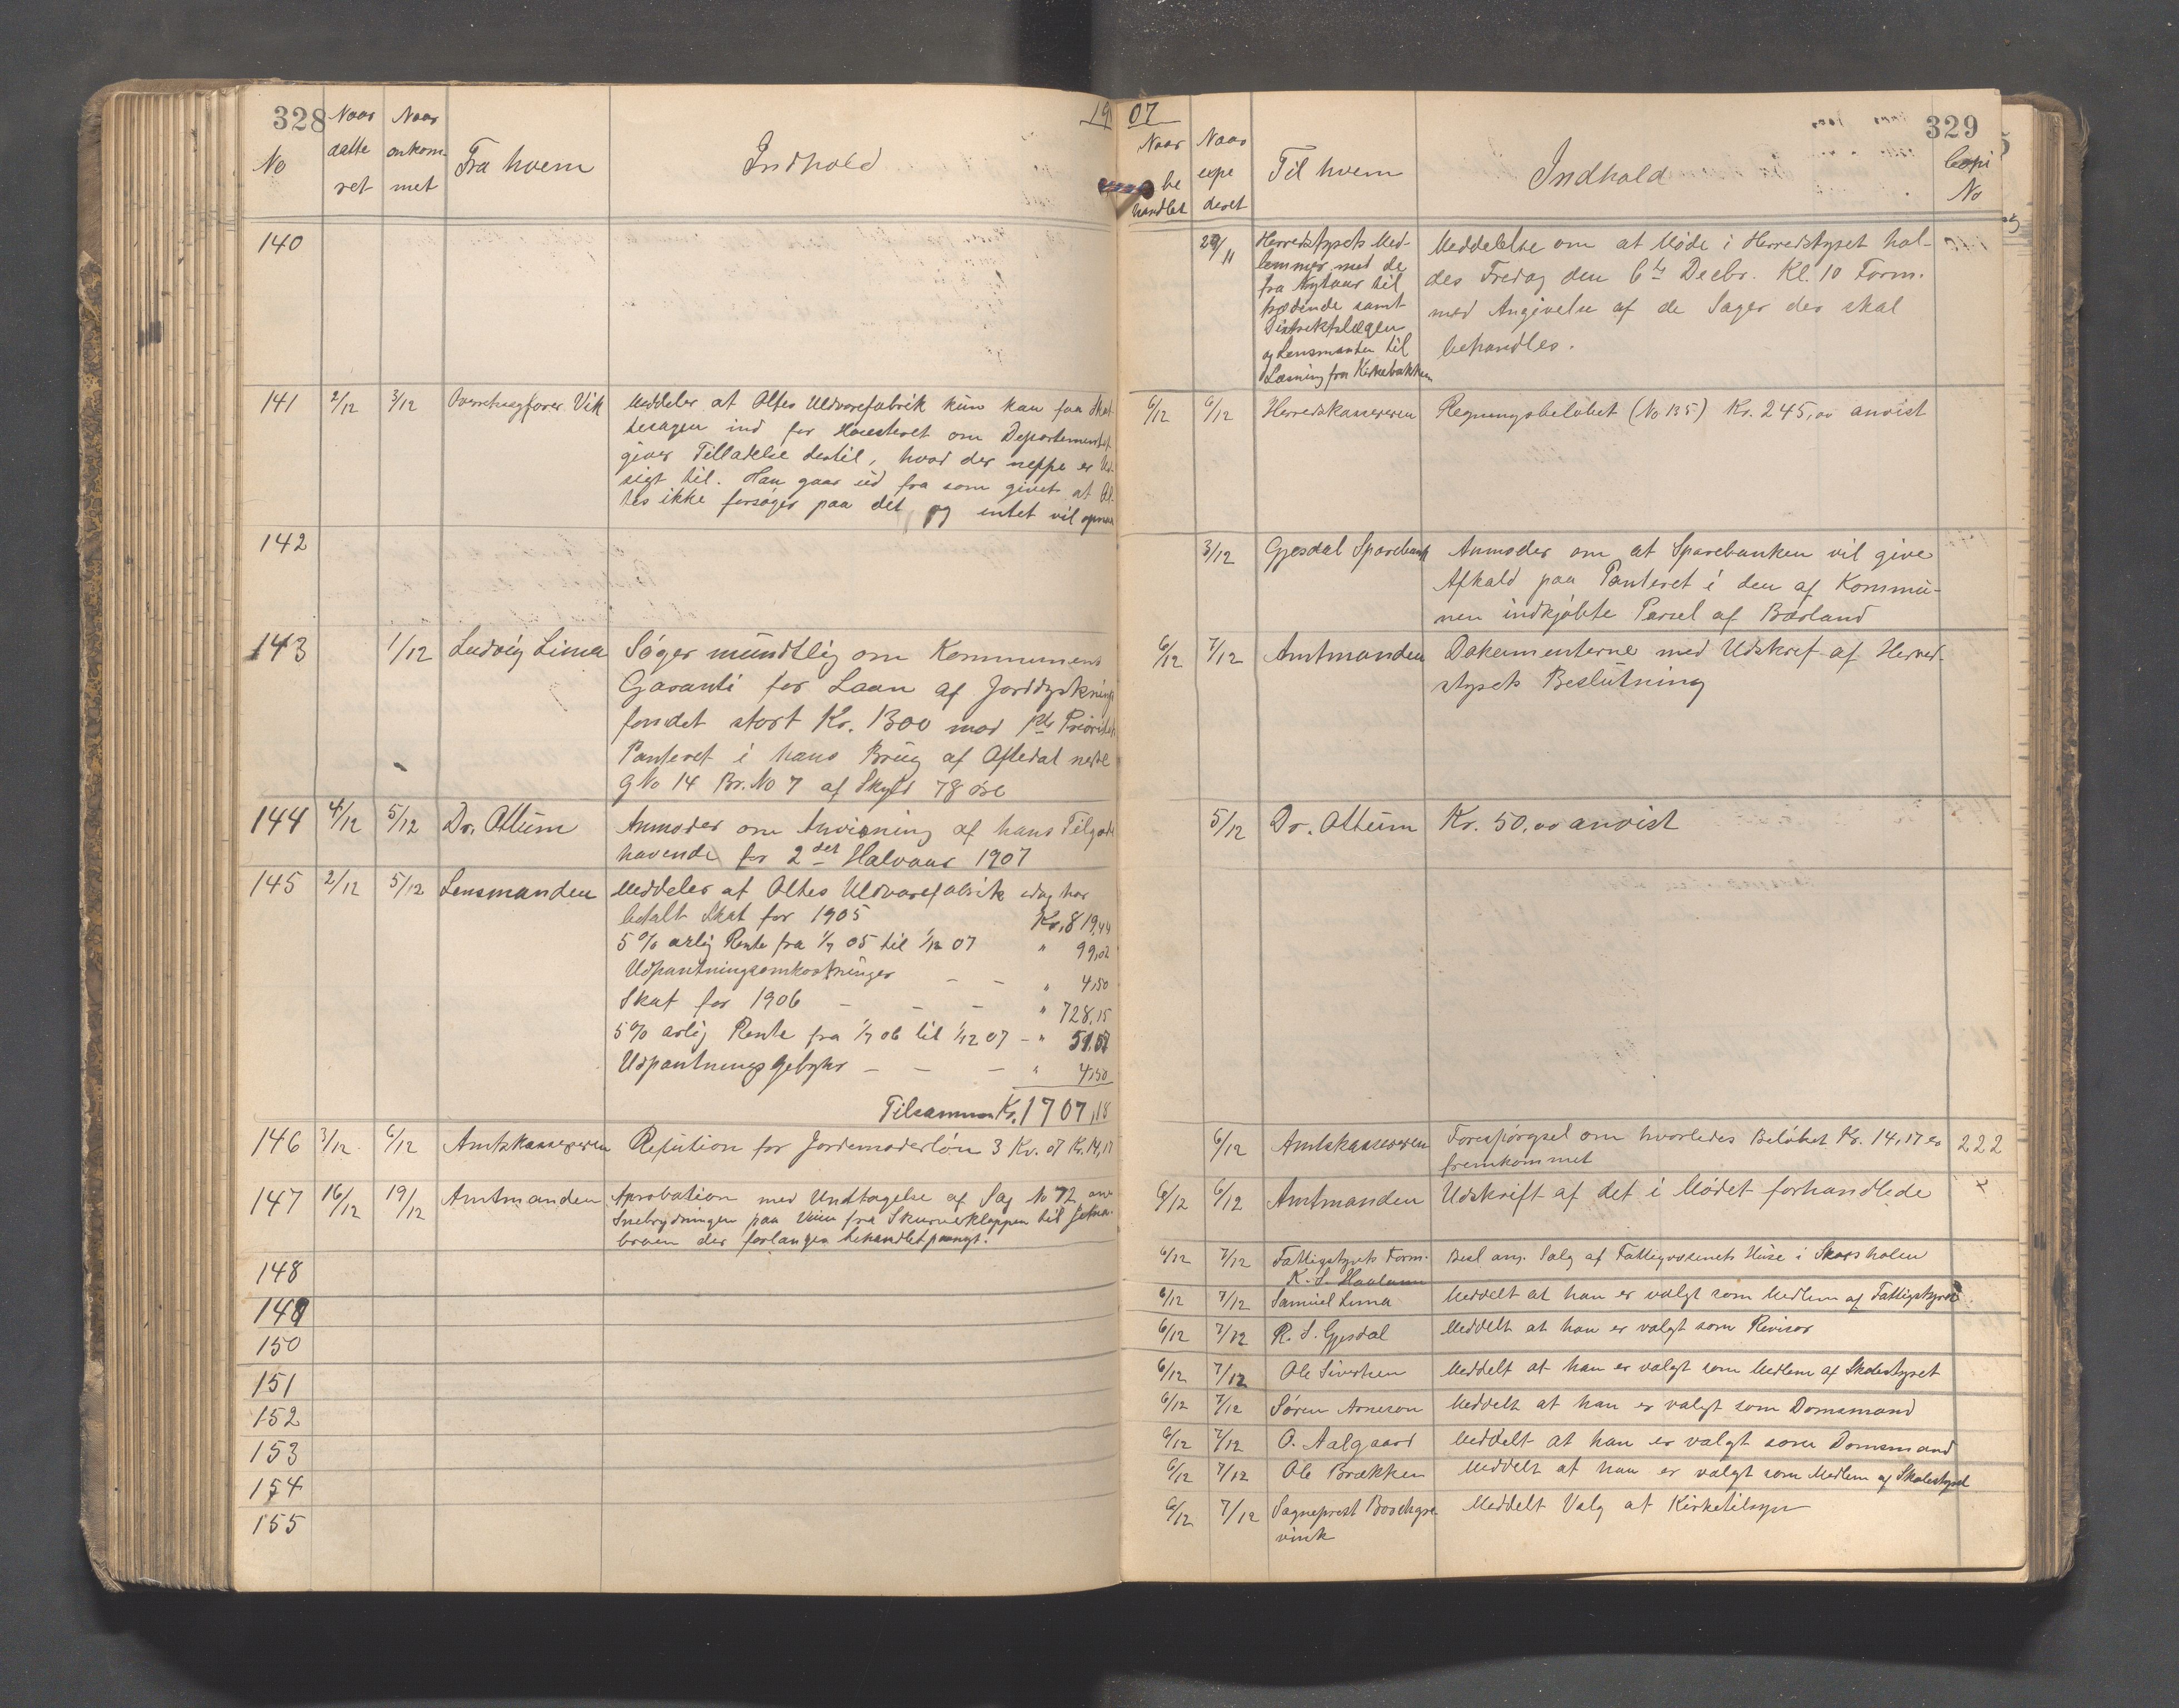 328
19
No
Naar datte ret
Naar ankom- met
Fra hvem
Indhold
140
141 2/12 3/12 Overretssagfører Vik
Meddeler at Oltes Uldvarefabrik kun kan faa Skat-
tesagen ind for Høiesteret om Departementet
giver Tilladelse dertil, hvad der neppe er Ud-
sigt til. Han gaar ud fra som givet at Ol-
tes ikke forsøger paa det og intet vil opnaa
142
143 1/12 Ludvig Lima
Søger mundtlig om Kommunens
Garanti for Laan af Jorddyrknings
fondet stort Kr. 1300 mod 1ste Prioritets
Panteret i hans Brug af Oftedal nedre
g No 14 Br. No 7 af Skyld 78 øre
144 4/12 5/12 Dr. Ottum
Anmoder om Anvisning af hans Tilgode
havende for 2det Halvaar 1907
145 2/12 5/12 Lensmanden
Meddeler at Oltes Uldvarefabrik idag har
betalt Skat for 1905 Kr. 819,44
5 % aarlig Rente fra 1/7 05 til 1/12 07 " 99,02
Udpantningsomkostninger — — " 4,50
Skat for 1906 — — — " 728,15
5 % aarlig Rente fra 1/7 06 til 1/12 07 — " 51,57
Udpantnings gebyhr — — — " 4,50
Tilsammen Kr. 1707,18
146 3/12 6/12 Amtskassereren Refution for Jordemoderløn 3 Kv. 07 Kr. 14,17
147 16/12 19/12 Amtmanden
Aprobation med Undtagelse af Sag No 72 om
Snebrydningen paa Veien fra Skurvekloppen til
broen der forlanges behandlet paanyt.
148
149
150
151
152
153
154
155
07
329
Naar be handlet
Naar expe deret
Til hvem
Indhold
Copi No
29/11
Herredstyrets Med-
lemmer med de
fra Nytaar til
trædende samt
Distriktslægen
og Lensmanden til
Læsning fra Kirkebakken
Meddelelse om at Møde i Herredstyret hol-
des Fredag den 6te Decbr. Kl. 10 Form.
med Angivelse af de Sager der skal
behandles.
6/12 6/12 Herredskassereren Regningsbeløbet (No 135) Kr. 245,00 anvist
3/12 Gjesdal Sparebank
Anmoder om at Sparebanken vil give
Afkald paa Panteret i den af Kommu-
nen indkjøbte Parsel af Bærland
6/12 7/12 Amtmanden
Dokumenterne med Udskrift af Herred-
styrets Beslutning
5/12 Dr. Ottum Kr. 50,00 anvist
6/12 Amtskassereren
Forespørgsel om hvorledes Beløbet Kr. 14,17 er 222
fremkommet
6/12 6/12 Amtmanden Udskrift af det i Mødet forhandlede
6/12 7/12 Fattigstyrets Form. Besl ang. Salg af Fattigvæsenets Huse i
6/12 7/12 Samuel Lima Meddelt at han er valgt som Medlem af Fattigstyret
6/12 7/12 R. S. Gjesdal Meddelt at han er valgt som Revisor
6/12 7/12 Ole Sivertsen Meddelt at han er valgt som Medlem af Skolestyret
6/12 7/12 Søren Arneson Meddelt at han er valgt som Domsmand
6/12 7/12 O. Aalgaard Meddelt at han er valgt som Domsmand
6/12 7/12 Ole Brækken Meddelt at han er valgt som Medlem af Skolestyret
6/12 7/12 Sogneprest Borchgre Meddelt Valg at Kirketilsyn
vink